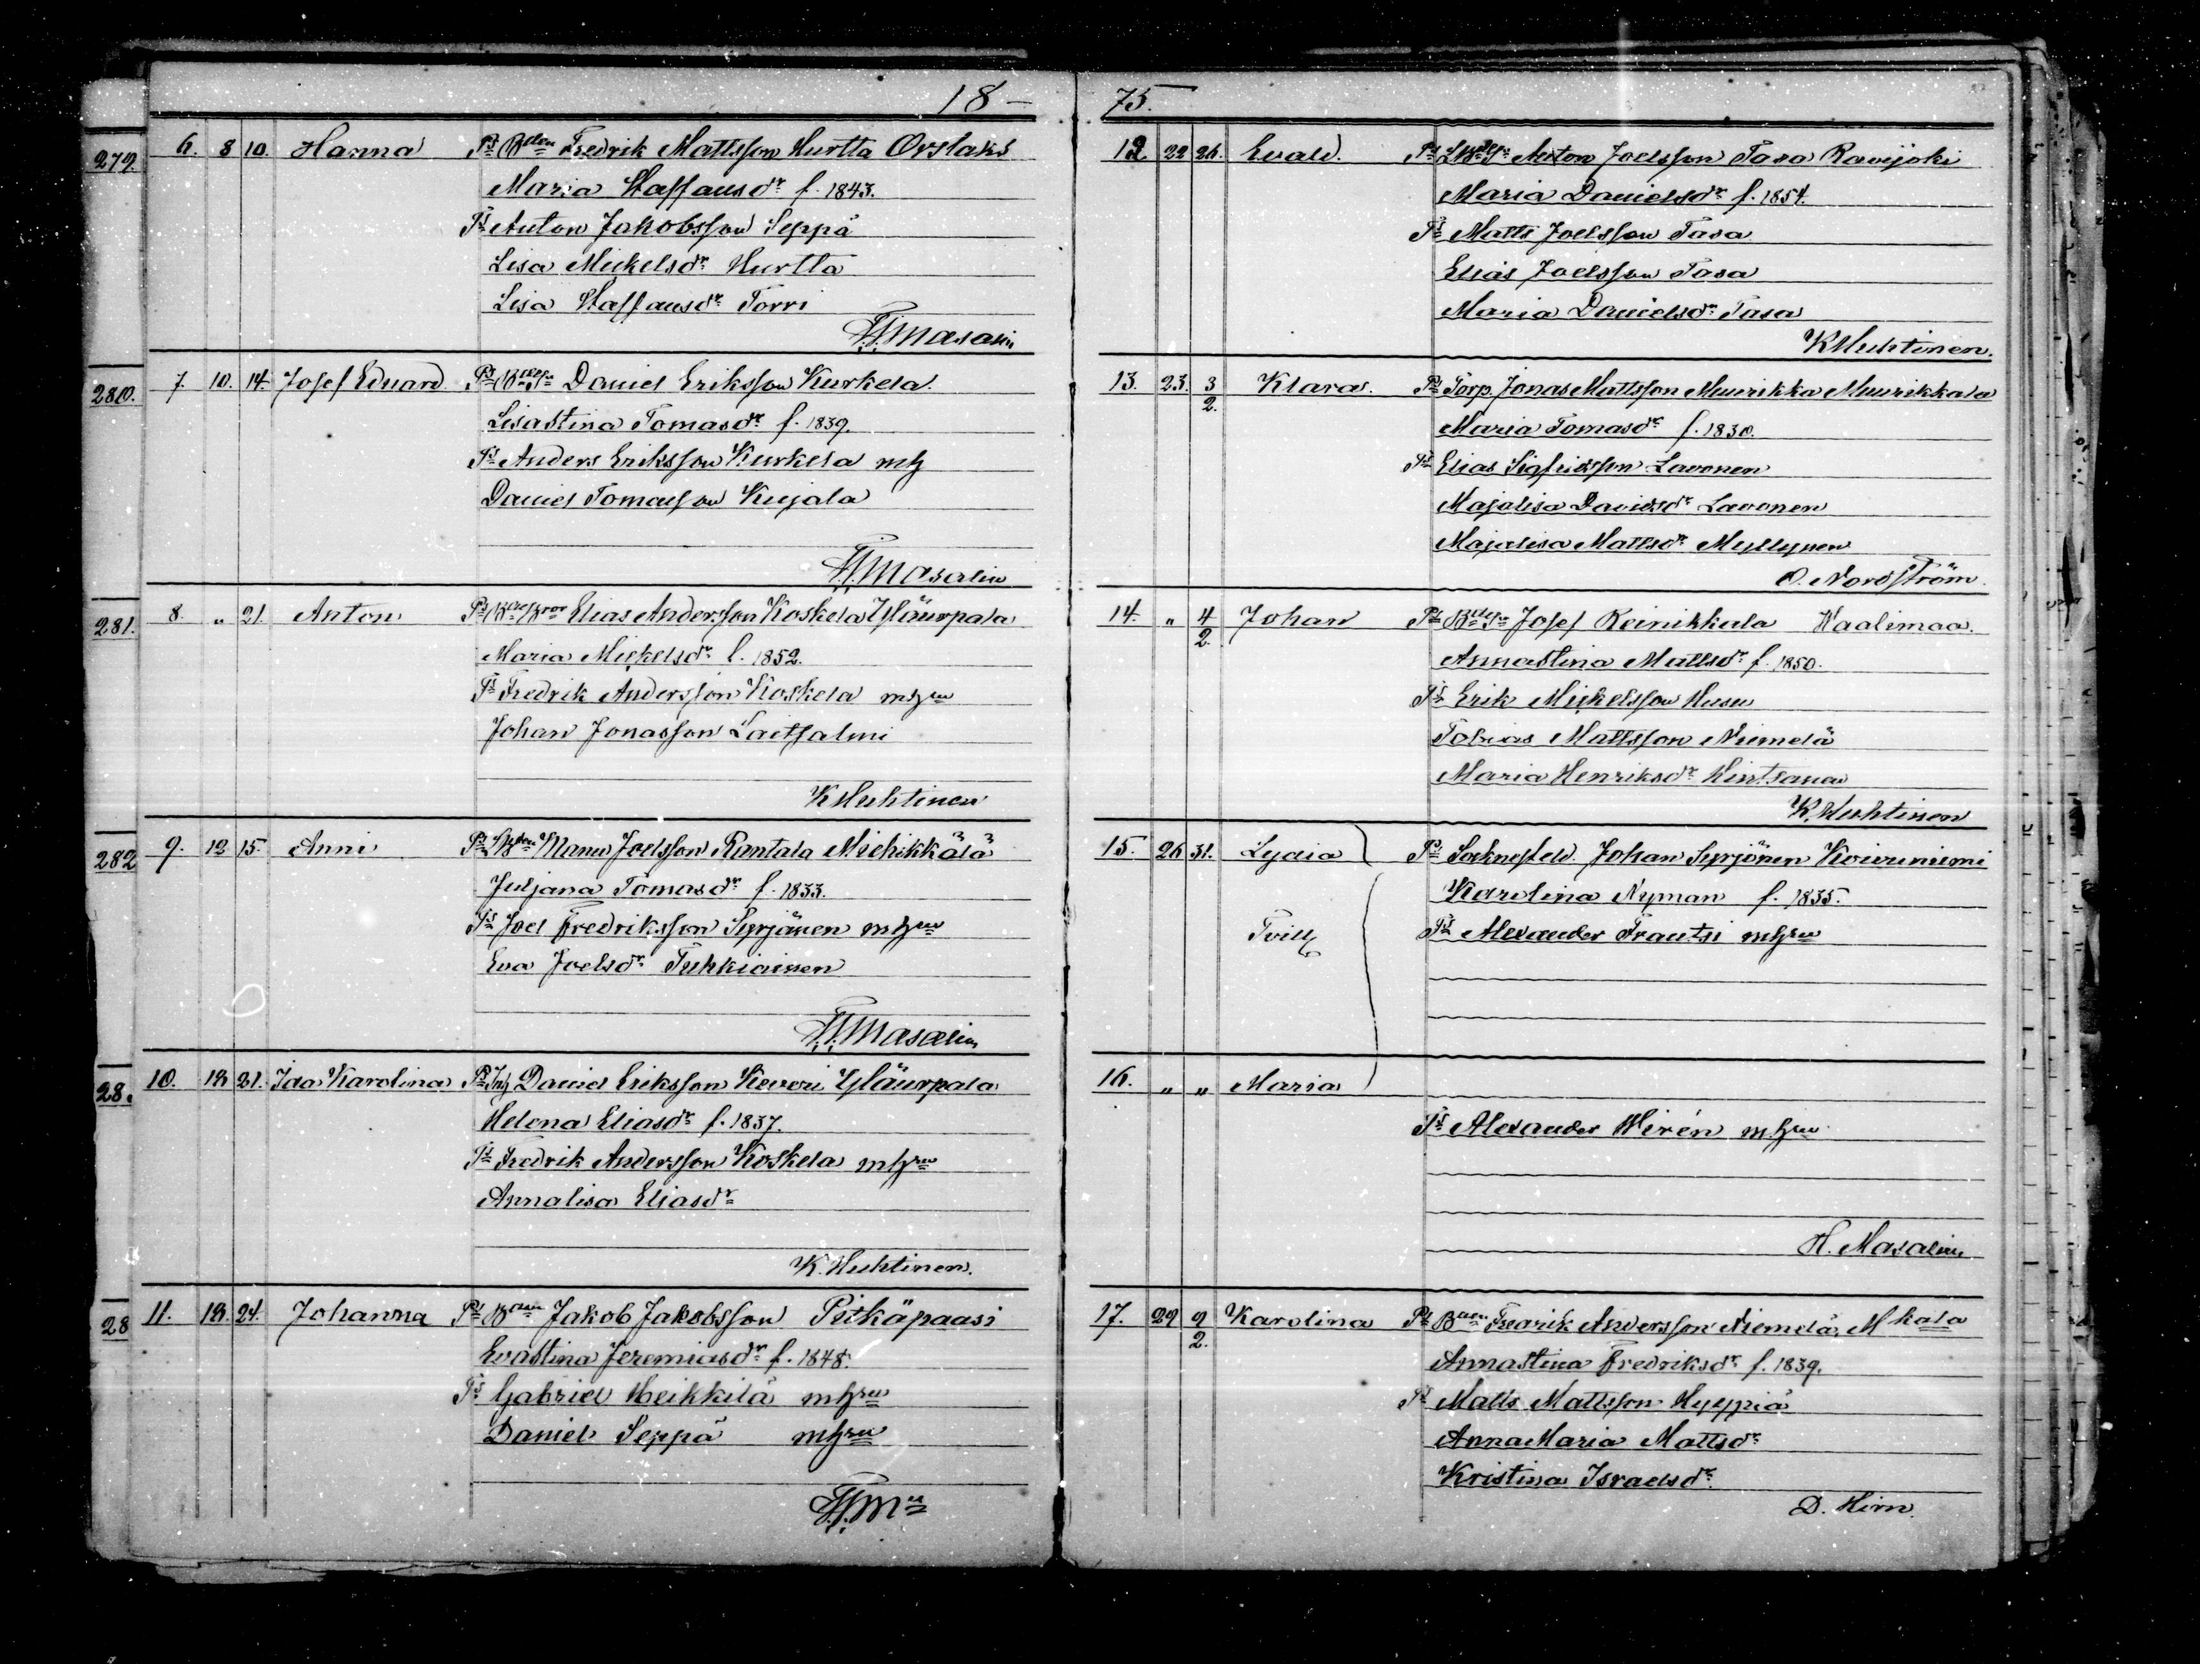 18–
279. 6. 8 10. Hanna Fredrik Mattsson Hurtta Orslaks
Maria Staffansdr f. 1843.
Anton Jakobsson Seppä
Lisa Mickelsdr Hurtta
Lisa Staffansdr Torri
Masalin
280. 7. 10. 14. Josef Eduard Daniel Eriksson Kurkela.
Lisastina Tomasdr f. 1839.
Anders Eriksson Kurkela mh
Daniel Tomasson Kujala
Masalin
281. 8. „ 21. Anton Elias Andersson Koskela Yläurpala
Maria Mickelsdr f. 1852.
Fredrik Andersson Koskela
Johan Jonasson Laitsalmi
K Huhtinen
282 9. 12 15. Anni Joelsson Rantala Miehikkälä
Juljana Tomasdr f. 1833.
Joel Fredriksson Syrjänen
Eva Joelsdr Tuhkiainen
Masalin
28 10. 18 21. Ida Karolina Daniel Eriksson Keveri Yläurpala
Helena Eliasdr f. 1837.
Fredrik Andersson Koskela
Annalisa Eliasdr
K. Huhtinen.
28 11. 18. 24. Johanna Jakob Jakobsson Pitkäpaasi
Evastina Jeremiasdr f. 1848.
Gabriel Heikkilä
Daniel Seppä
75.
12 22 26. Evald. Anton Joelsson Tasa Ravijoki
Maria Danielsdr f. 1854.
Matts Joelsson Tasa
Elias Joelsson Tasa
Maria Danielsdr Tasa
K Huhtinen.
13. 23. 3/2. Klara. Torp. Jonas Mattsson Muurikka Muurikkala
Maria Tomasdr f. 1830.
Elias Sigfridsson Lavonen
Majalisa Davidsdr Lavonen
Majalisa Mattsdr Myllynen
O. Nordström.
14. „ 4/2. Johan Josef Reinikkala Waalimaa.
Annastina Mattsdr f. 1850.
Erik Mickelsson Husu
Tobias Mattsson Niemelä
Maria Henriksdr Hintsanen
K. Huhtinen
15. 26 31. Lydia Johan Syrjönen Koivuniemi
Karolina Nyman f. 1835.
Tvill Alexander Frantsi
16. „ „ Maria
Alexander Hirén
H. Masalin
17. 29 9/2. Karolina Fredrik Andersson Niemelä, M kala
Annastina Fredriksdr f. 1839.
Matts Mattsson Hyyppiä
Anna Maria Mattsdr
Kristina Israelsdr
D. Hirn.